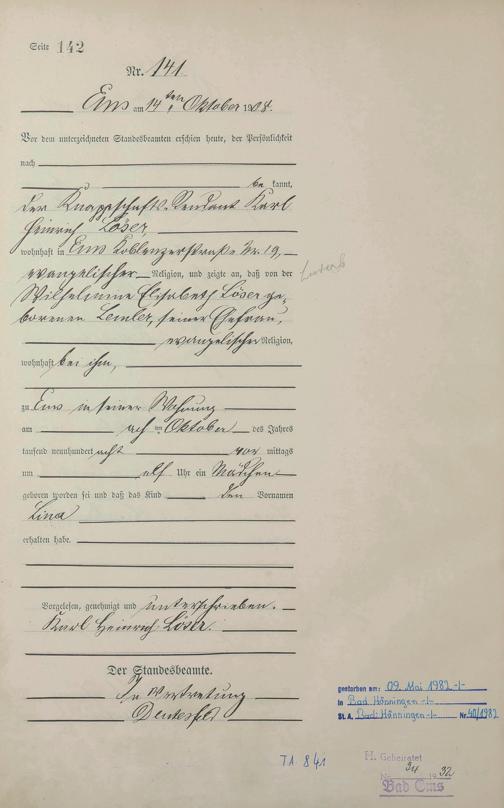 Seite 142
Nr. 141
Ems am 14ten Oktober 1908.
Vor dem unterzeichneten Standesbeamten erschien heute, der Persönlichkeit
nach
be kannt,
der Knappschafts-Rendant Karl
Heinrich Löser,
wohnhaft in Ems Koblenzerstraße Nr. 19,
evangelischer Religion, und zeigte an, daß von der
Wilhelmine Elisabeth Löser ge-
borenen Lemler, seiner Ehefrau,
evangelischer Religion,
wohnhaft bei ihm,
zu Ems in seiner Wohnung
am acht im Oktober des Jahres
tausend neunhundert acht vor mittags
um elf Uhr ein Mädchen
geboren worden sei und daß das Kind den Vornamen
Lina
erhalten habe.
Vorgelesen, genehmigt und unterschrieben.
Karl Heinrich Löser.
Der Standesbeamte.
In Vertretung
gestorben am: 09. Mai 1982 -/-
in Bad Hönningen -/-
St. A. Bad Hönningen -/- Nr. 40/1982
TA 841
H. Geheiratet
No. 34 1932
Bad Ems